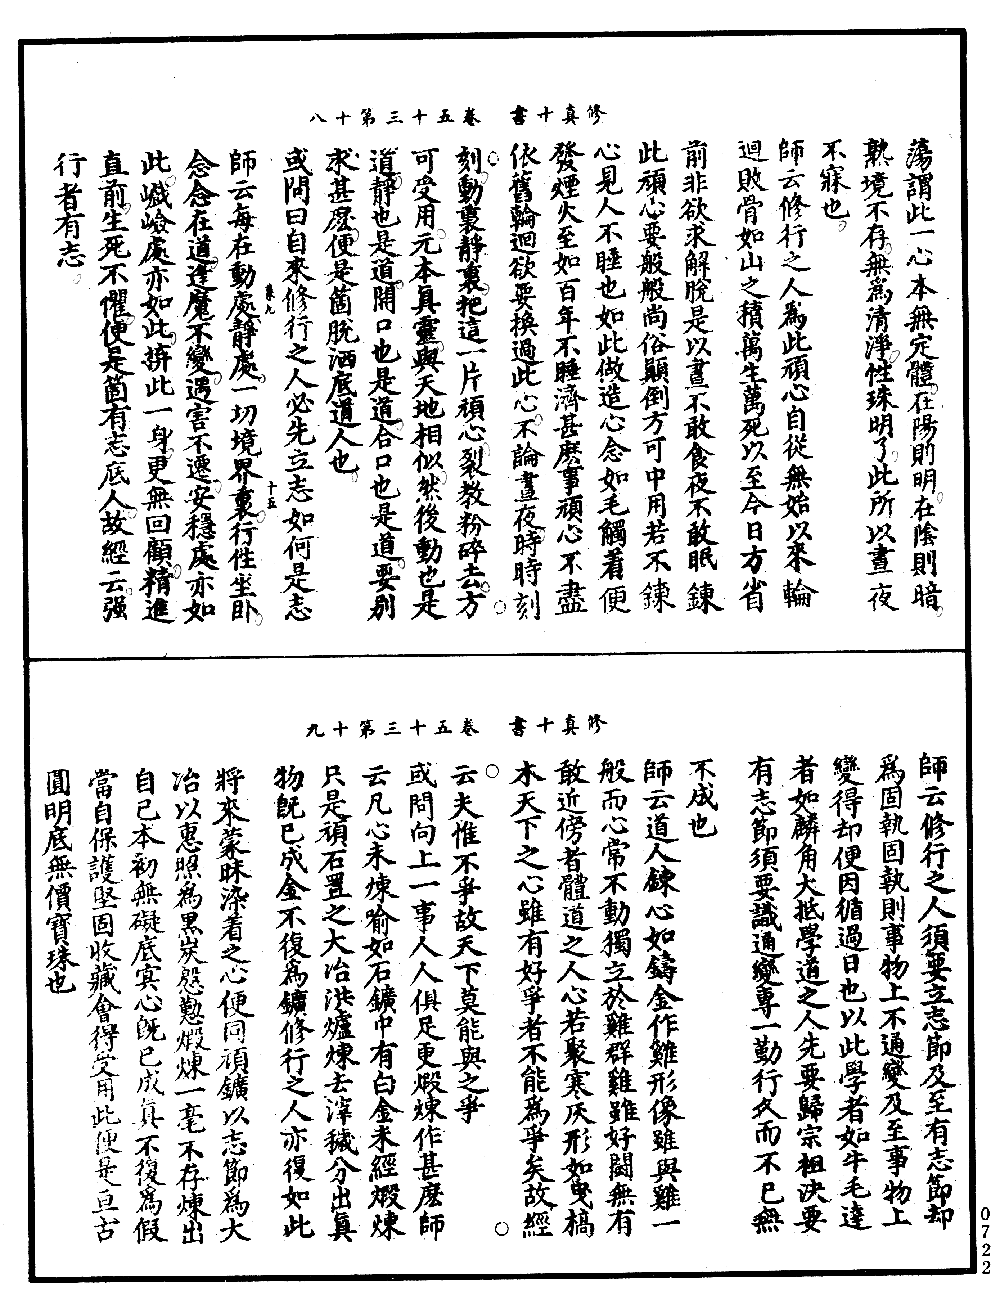 修真十書　卷五十三第十八
蕩謂此一心本無定體在陽則明在陰則暗
熟境不存無為清淨性珠明了此所以晝夜
不寐也
師云修行之人為此頑心自從無始以來輪
迴敗骨如山之積萬生萬死以至今日方省
前非欲求解脫是以晝不敢食夜不敢眠鍊
此頑心要般般尚俗顛倒方可中用若不鍊
心見人不睡也如此做造心念如毛觸着便
發煙火至如百年不睡濟甚麽事頑心不盡
依舊輪迴欲要換過此心不論晝夜時時刻
刻動裏靜裏把這一片頑心裂教粉碎去方
可受用元本真靈與天地相似然後動也是
道靜也是道開口也是道合口也是道要別
求甚麽便是箇脫洒底道人也
或問曰自來修行之人必先立志如何是志
卷九　十五
師云每在動處靜處一切境界裏行性坐卧
念念在道逢魔不變遇害不遷安穩處亦如
此巇嶮處亦如此拚此一身更無回顧精進
直前生死不懼便是箇有志底人故經云强
行者有志
修真十書　卷五十三第十九
師云修行之人須要立志節及至有志節却
為固執固執則事物上不通變及至事物上
變得却便因循過日也以此學者如牛毛達
者如麟角大抵學道之人先要歸宗祖決要
有志節須要識通變專一勤行久而不已無
不成也
師云道人鍊心如鑄金作雞形像雖與雞一
般而心常不動獨立於雞群雞雖好鬭無有
敢近傍者體道之人心若聚寒灰形如曳槁
木天下之心雖有好爭者不能為爭矣故經
云夫惟不爭故天下莫能與之爭
或問向上一事人人俱足更煅煉作甚麽師
云凡心未煉喻如石鑛中有白金未經煅煉
只是頑石置之大冶洪爐煉去滓穢分出真
物既已成金不復為鑛修行之人亦復如此
將來蒙昧染着之心便同頑鑛以志節為大
冶以惠照為黑炭慇懃煅煉一毫不存煉出
自己本初無礙底真心既已成真不復為假
當自保護堅固收藏會得受用此便是亘古
圓明底無價寶珠也
0722